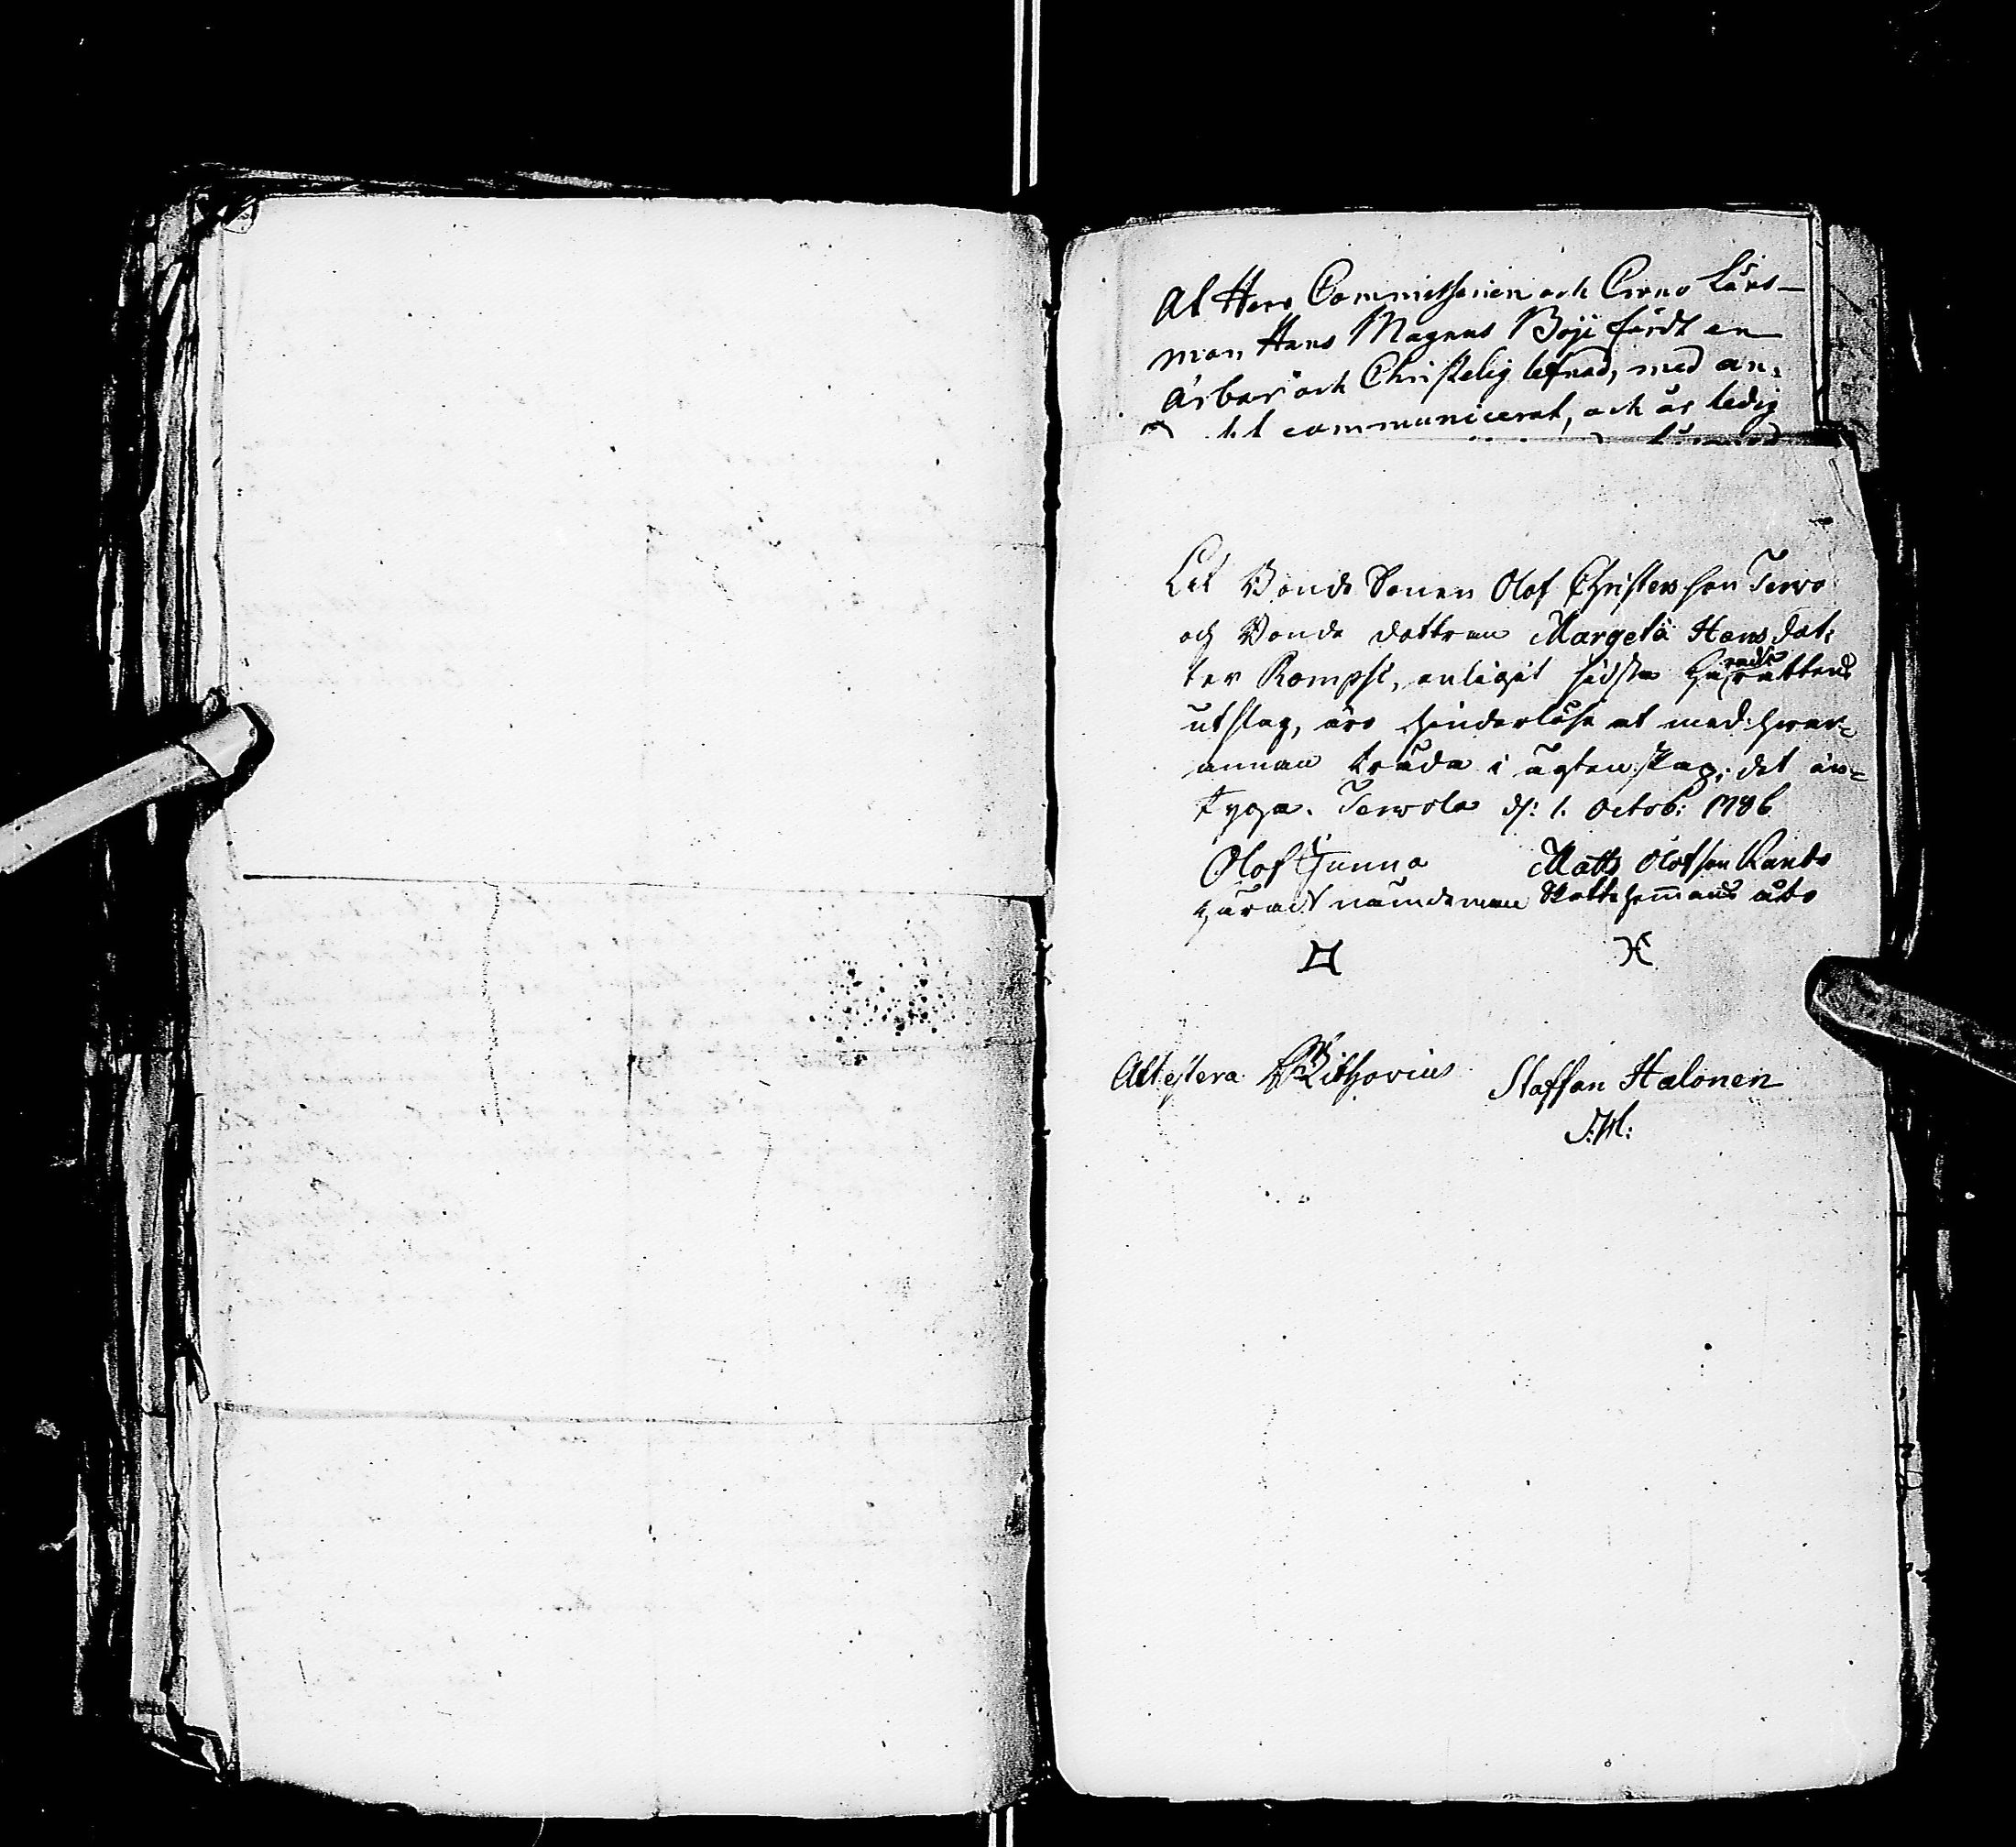 At Herr Commissarien och Crono Läns-
man Hans Magnus Boje fördt en
ärbar och Christelig lefnad, med an-
communicerat, och är ledig
At Bonde Sonen Olof Christersson Tervo
och Bonde dottren Margeta Hans dot:
ter Kompsi, enligit sidsta Häradsrättens
utslag, äro hinderlöse at med hwar-
annan träda i ägtenskap; det in-
tyga. Terwola d: 1. Octob: 1786
Olof Gunna Matts Olofson Kando
härads nämdeman Skattehemmans åbo
Attestera Lithovius Staffan Halonen